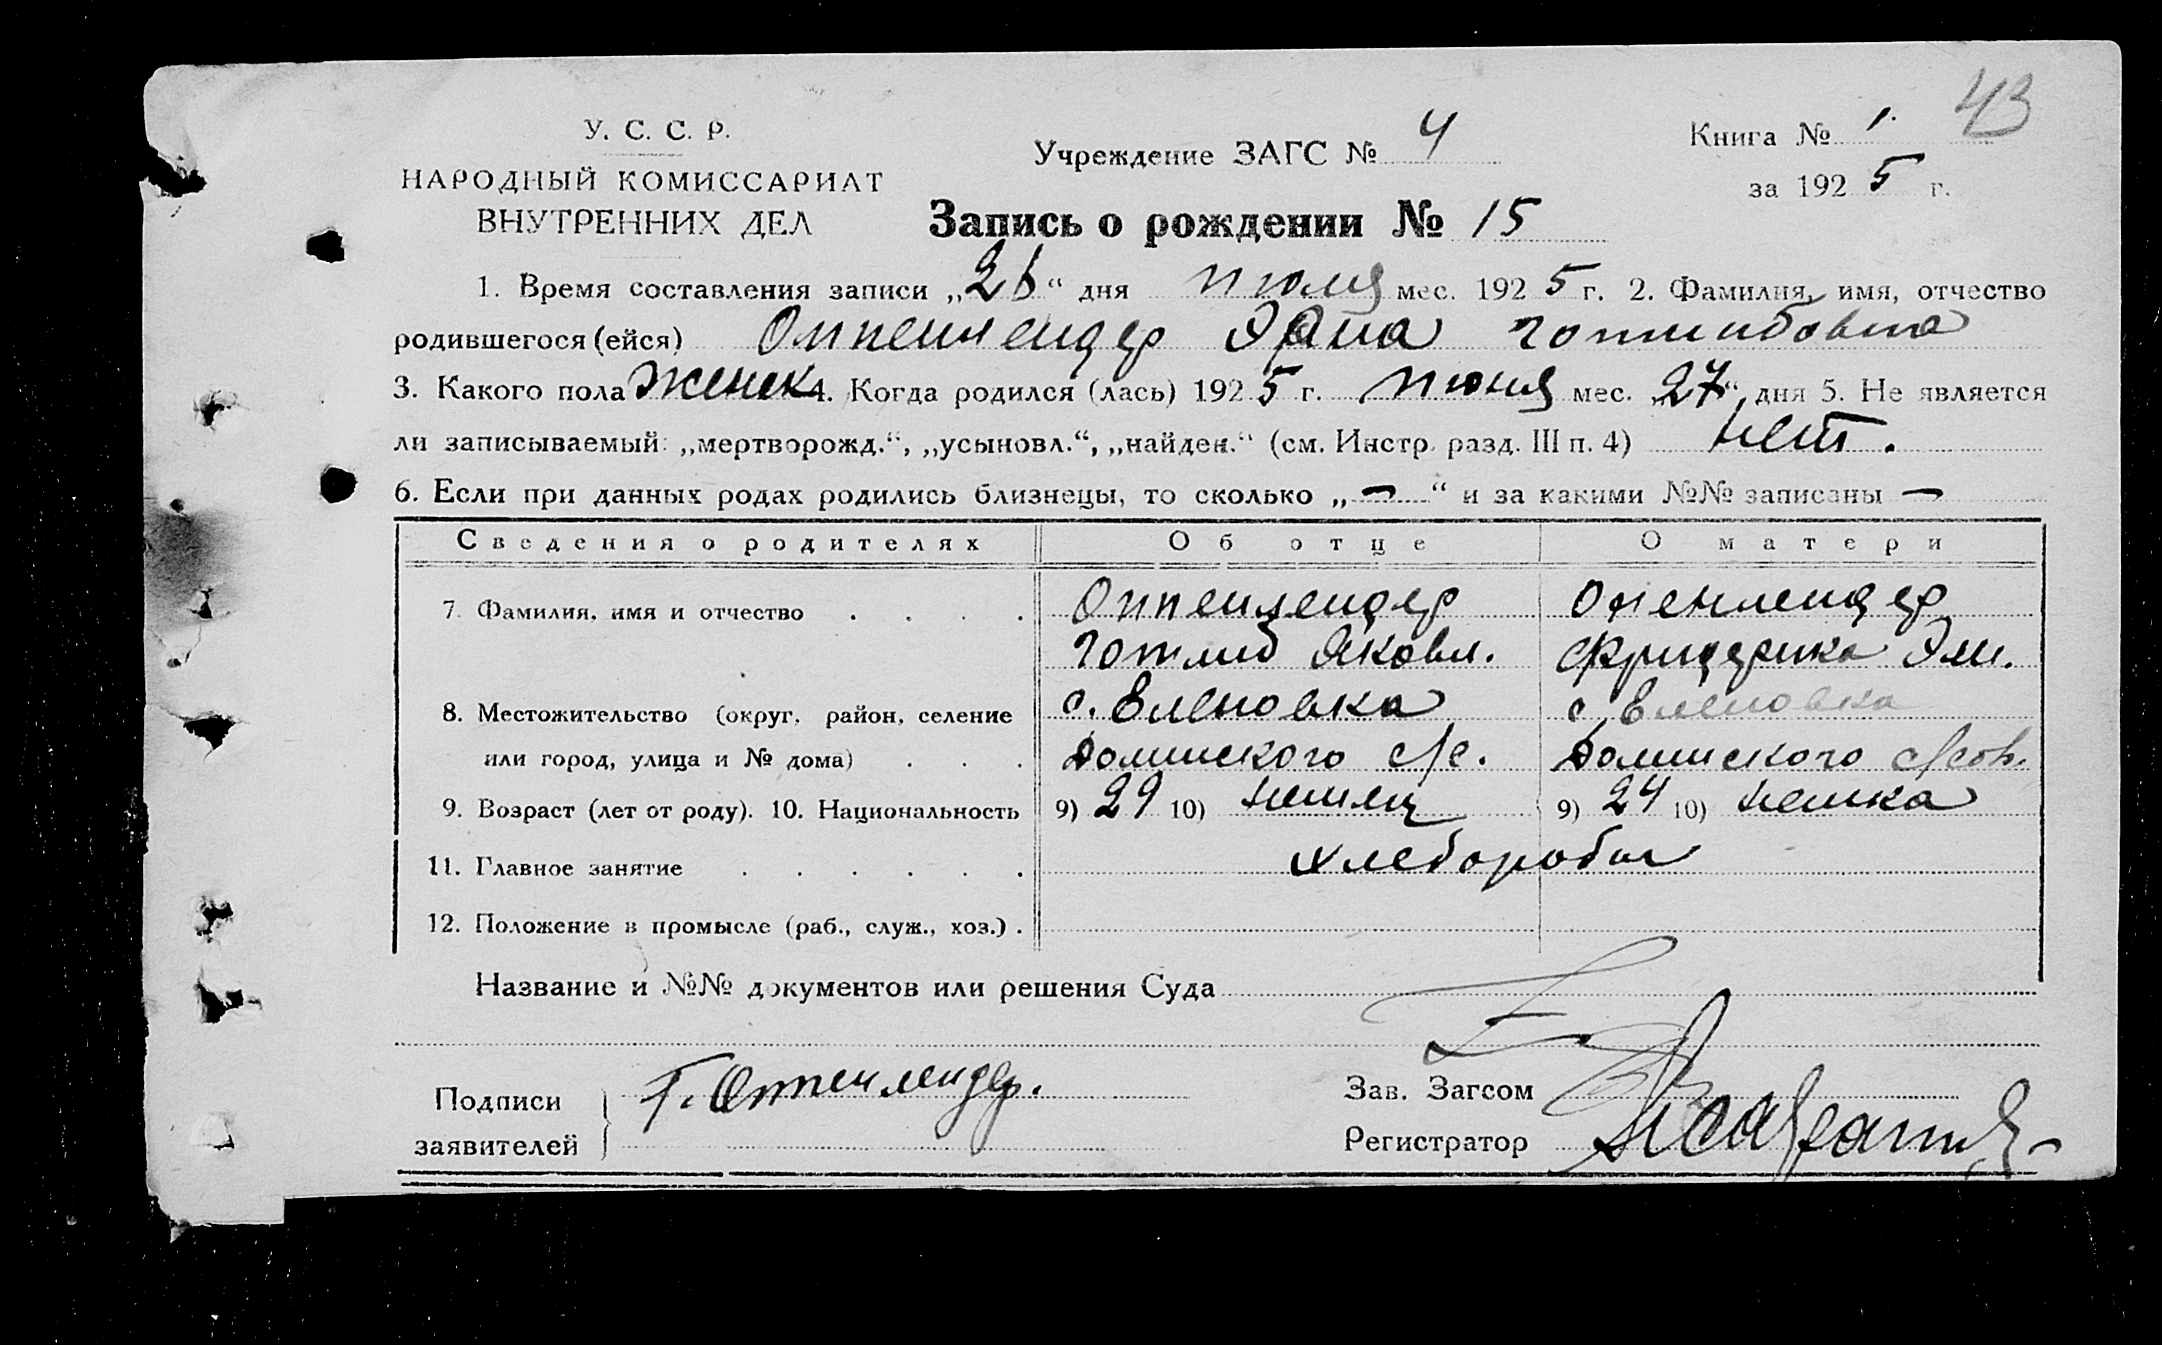 43
У. С. С. Р.
НАРОДНЫЙ КОМИССАРИАТ
ВНУТРЕННИХ ДЕЛ
Учреждение ЗАГС № 4
Книга № 1.
за 1925 г.
Запись о рождении № 15
1. Время составления записи „26“ дня июля мес. 1925 г. 2. Фамилия, имя, отчество
родившегося (ейся) Оппенлендер Эрна Готлибовна
3. Какого пола женск 4. Когда родился (лась) 1925 г. июня мес. „27“ дня 5. Не является
ли записываемый: „мертворожд.“, „усыновл.“, „найден.“ (см. Инстр. разд. III п. 4) нет.
6. Если при данных родах родились близнецы, то сколько „—“ и за какими №№ записаны —
Сведения о родителях Об отце О матери
7. Фамилия, имя и отчество . . . . Оппенлендер Опенлендер
Готлиб Яковл. Фридерика Эм.
8. Местожительство (округ, район, селение с. Еленовка с. Еленовка
или город, улица и № дома) . . . с/с. с/сов.
9. Возраст (лет от роду). 10. Национальность 9) 29 10) немец 9) 24 10) немка
11. Главное занятие . . . . . . хлеборобы
12. Положение в промысле (раб., служ., хоз.) .
Название и №№ документов или решения Суда
Подписи
заявителей
Г. Оппенлендер.
Зав. Загсом
Регистратор